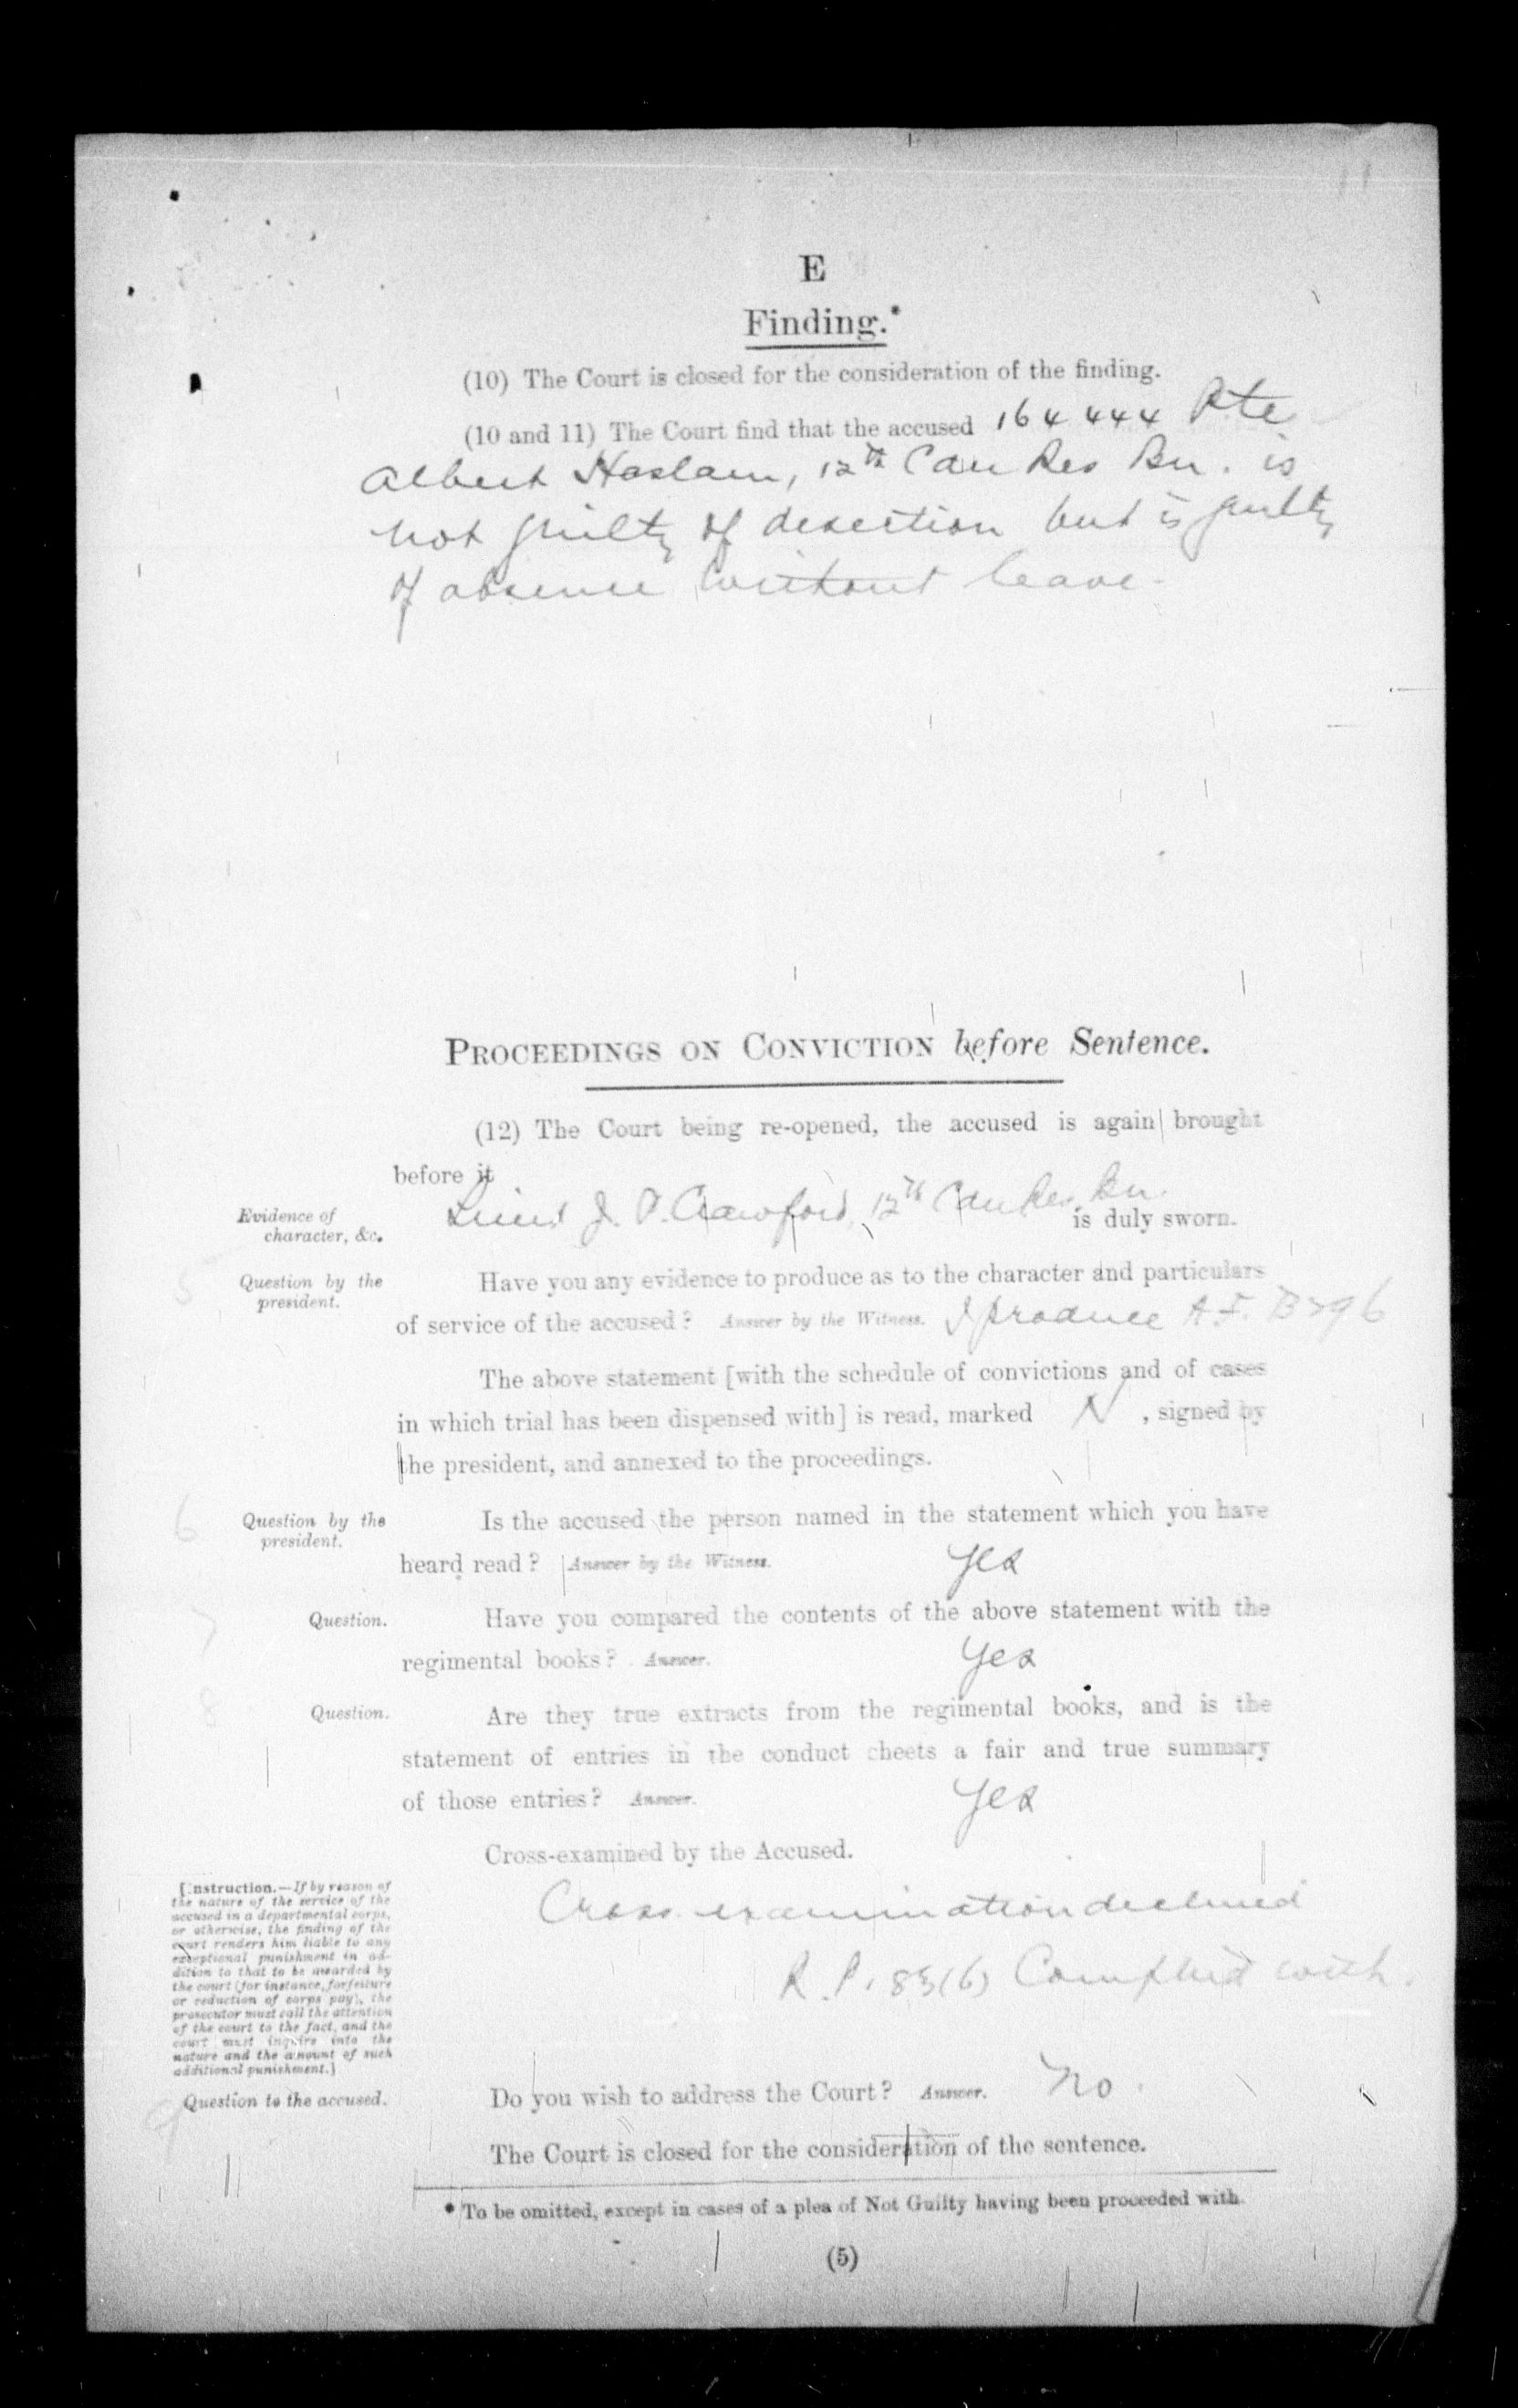 11
E
Finding.*
(10) The Court is closed for the consideration of the finding.
(10 and 11) The Court find that the accused 164444 Pte
Albert Haslam, 12th Can Res Bn. is
not guilty of desertion but is guilty
of absence without leave.
PROCEEDINGS ON CONVICTION before Sentence.
(12) The Court being re-opened, the accused is again brought
before it
Evidence of
character, &c.
Lieut J. P. Crawford, 12th Can Res. Bn.
is duly sworn.
5
Question by the
president.
Have you any evidence to produce as to the character and particulars
of service of the accused? Answer by the Witness. I produce A.F. B296
The above statement [with the schedule of convictions and of cases
in which trial has been dispensed with] is read, marked N, signed by
the president, and annexed to the proceedings.
6
Question by the
president.
Is the accused the person named in the statement which you have
heard read? Answer by the Witness. Yes
7
Question.
Have you compared the contents of the above statement with the
regimental books? Answer. Yes
8
Question.
Are they true extracts from the regimental books, and is the
statement of entries in the conduct sheets a fair and true summary
of those entries? Answer. Yes
Cross-examined by the Accused.
Cross-examination declined
R.P. 83(6) Complied with.
[Instruction.—If by reason of
the nature of the service of the
accused in a departmental corps,
or otherwise, the finding of the
court renders him liable to any
exceptional punishment in ad-
dition to that to be awarded by
the court (for instance, forfeiture
or reduction of corps pay), the
prosecutor must call the attention
of the court to the fact, and the
court must inquire into the
nature and the amount of such
additional punishment.]
9
Question to the accused.
Do you wish to address the Court? Answer. No.
The Court is closed for the consideration of the sentence.
* To be omitted, except in cases of a plea of Not Guilty having been proceeded with.
(5)